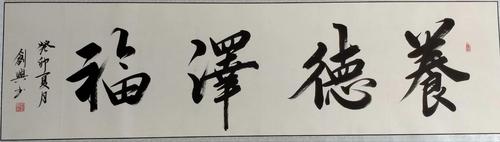 養德澤福
癸卯夏月
劍興書